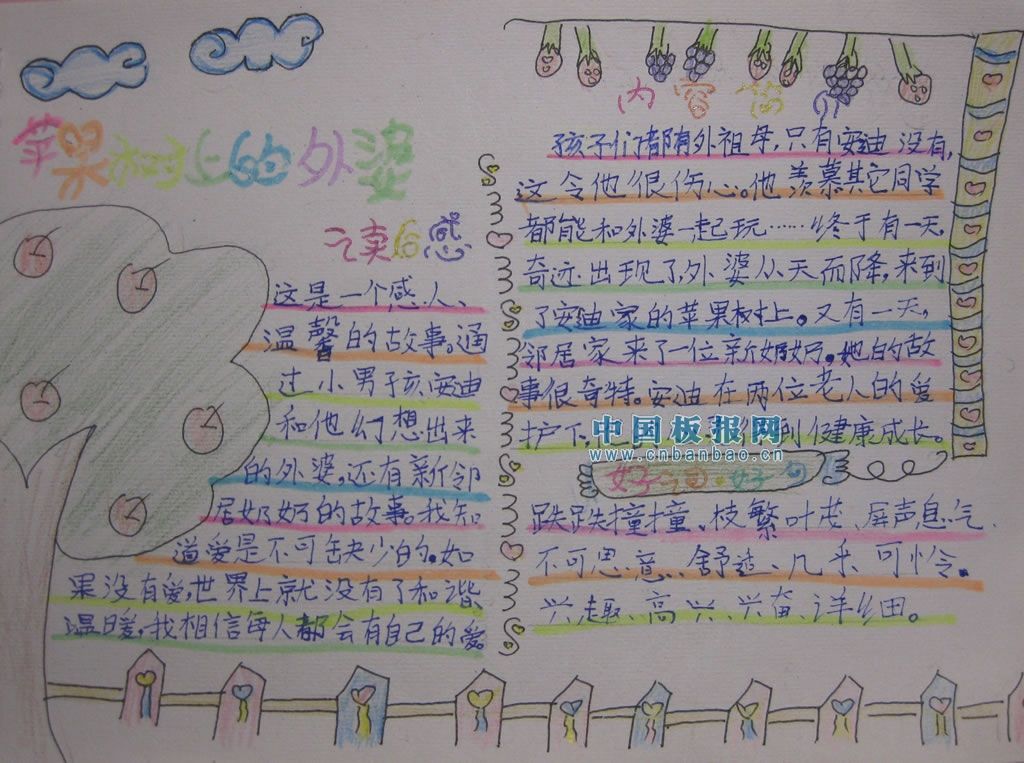 苹果树上的外婆
之读后感
这是一个感人、
温馨的故事。通
过小男孩安迪
和他幻想出来
的外婆,还有新邻
居奶奶的故事。我知
道爱是不可缺少的。如
果没有爱,世界上就没有了和谐、
温暖,我相信每人都会有自己的爱。
内容简介
孩子们都有外祖母,只有安迪没有,
这令他很伤心。他羡慕其它同学
都能和外婆一起玩……终于有一天,
奇迹出现了,外婆从天而降,来到
了安迪家的苹果树上。又有一天,
邻居家来了一位新奶奶。她的故
事很奇特。安迪在两位老人的爱
护下,到健康成长。
中国板报网
www.cnbanbao.cn
好词·好句
跌跌撞撞、枝繁叶茂、屏声息气、
不可思意、舒适、几乎、可怜、
兴趣、高兴、兴奋、详细。